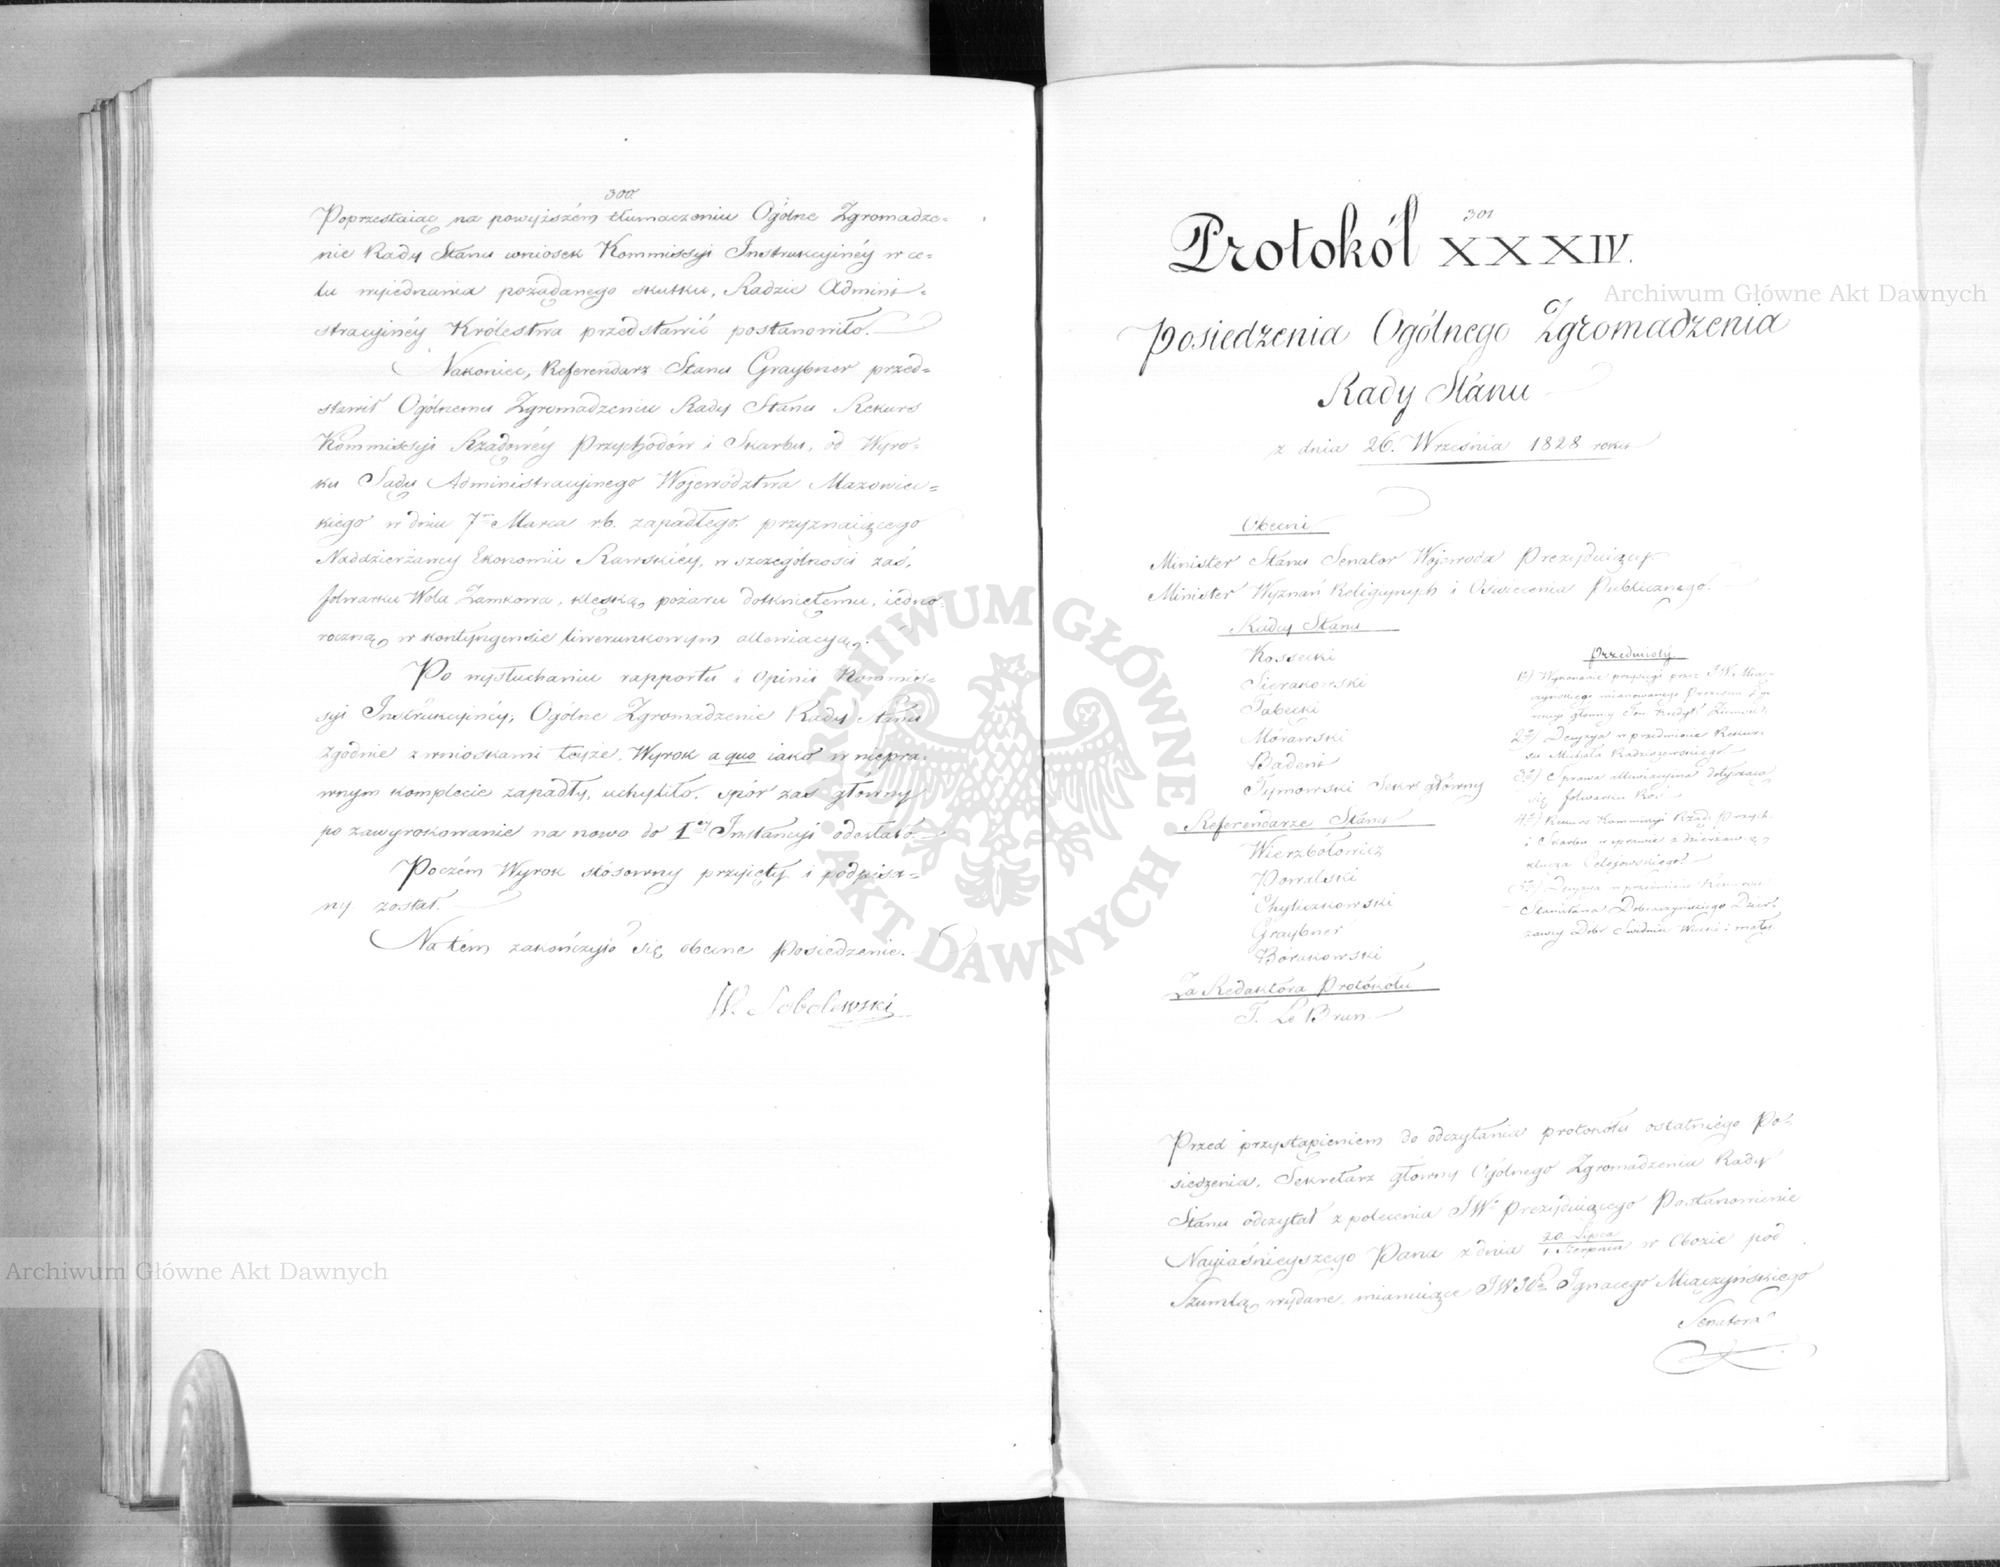 300.
Poprzestaiąc na powyższém tłumaczeniu Ogólne Zgromadze=
nie Rady Stanu wniosek Kommissyi Instrukcyinéy w ce=
lu wyiednania pożądanego skutku, Radzie Admini=
stracyinéy Królestwa przedstawić postanowiło.
Nakoniec, Referendarz Stanu Graybner przed=
stawił Ogólnemu Zgromadzeniu Rady Stanu Rekurs
Kommissyi Rządowéy Przychodów i Skarbu, od Wyro=
ku Sądu Administracyinego Województwa Mazowiec=
kiego w dniu 7. Marca r.b. zapadłego przyznaiącego
Naddzierżawcy Ekonomii Rawskiéy, w szczególności zaś,
folwarku Wola Zamkowa, klęską pożaru dotkniętemu, iedno=
roczną w kontyngensie liwerunkowym allewiacyą.
Po wysłuchaniu rapportu i Opinii Kommis=
syi Instrukcyinéy, Ogólne Zgromadzenie Rady Stanu
zgodnie z wnioskami teyże, Wyrok a quo iako w niepra=
wnym komplecie zapadły, uchyliło, spór zaś główny
po zawyrokowanie na nowo do 1éy Instancyi odesłało.
Poczém Wyrok stósowny przyięty i podpisa=
ny został.
Na tém zakończyło się obecne Posiedzenie.
W. Sobolewski
301
Protokół XXXIV.
Posiedzenia Ogólnego Zgromadzenia
Rady Stanu
z dnia 26. Września 1828 roku
Obecni
Minister Stanu Senator Wojewoda Prezyduiący
Minister Wyznań Religiynych i Oświecenia Publicznego.
Rady Stanu
Kossecki
Sierakowski
Tabęcki
Morawski
Badeni
Tymowski Sekr. główny
Referendarze Stanu
Wierzbołowicz
Powalski
Chyliczkowski
Graybner
Borakowski
Za Redaktora Protokółu
T. Le Brun
Przedmioty
1º) Wykonanie przysięgi przez JW. Mią=
czyńskiego mianowanego Prezesem Dy=
rekcyi główney Tow. Kredyt. Ziemsk.
2º) Decyzya w przedmiocie Rekur=
su Michała Radziszewskiego
3º) Sprawa allewiacyina dotycząca
się folwarku Roś
4º) Rekurs Kommissyi Rząd. Przych.
i Skarbu w sprawie z dzierżawcą
klucza Celejowskiego.
5º) Decyzya w przedmiocie Rekursu
Stanisława Dobraczyńskiego Dzier=
żawcy Dóbr Swidnik Wielki i mały.
Przed przystąpieniem do odczytania protokółu ostatniego Po=
siedzenia, Sekretarz główny Ogólnego Zgromadzenia Rady
Stanu odczytał z polecenia JW. Prezyduiącego Postanowienie
Nayiaśnieyszego Pana z dnia 20 Lipca / 1 Sierpnia w Obozie pod
Szumlą wydane, mianuiące JW. Hr. Ignacego Miączyńskiego
Senatora
Archiwum Główne Akt Dawnych
Archiwum Główne Akt Dawnych
ARCHIWUM GŁÓWNE AKT DAWNYCH